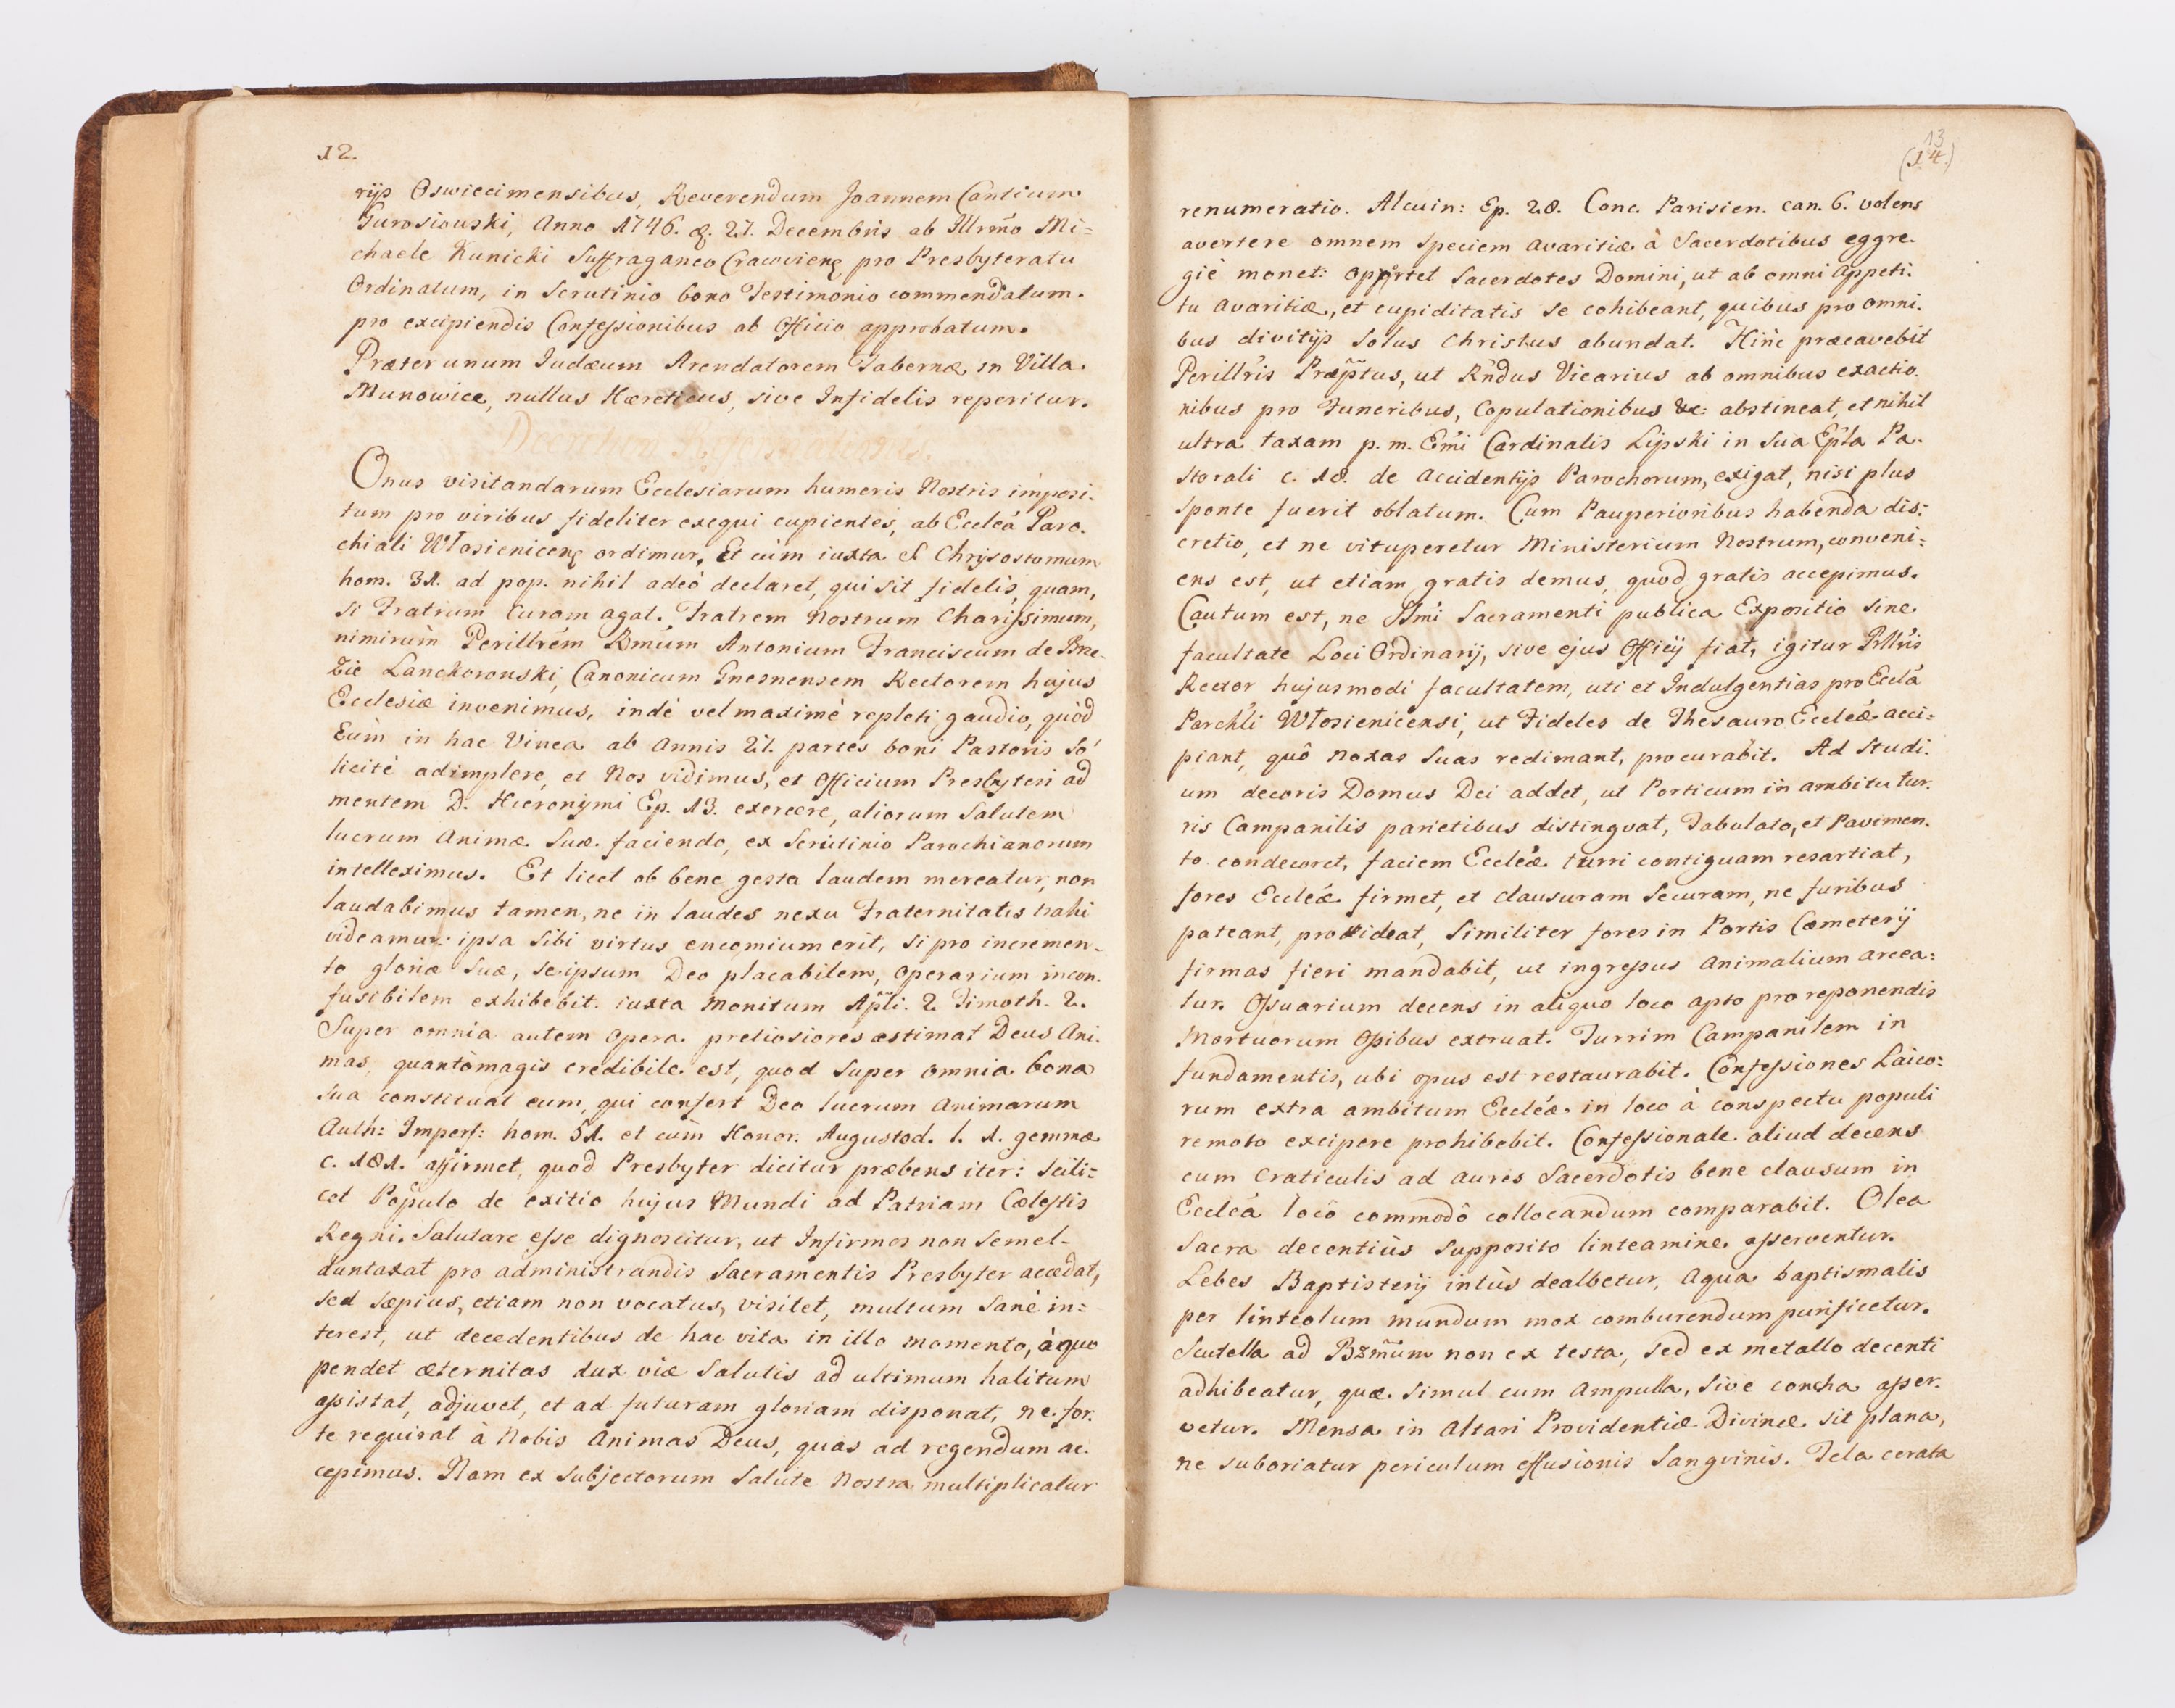 12.
rijs Oswiecimensibus, Reverendum Joannem Cantium
Turosiowski, Anno 1746. d. 27. Decembris ab Illrm̃o Mi=
chaele Kunicki Suffraganeo Cracovieñ pro Presbyteratu
Ordinatum, in Scrutinio bono Testimonio commendatum.
pro excipiendis Confessionibus ab Officio approbatum.
Præter unum Judæum Arendatorem Tabernæ in Villa
Munowice, nullus Hæreticus, sive Infidelis reperitur.
Decretum Reformationis.
Onus visitandarum Ecclesiarum humeris Nostris imposi-
tum pro viribus fideliter exequi cupientes, ab Eccleá Paro-
chiali Włosieniceñ ordimur, Et cùm iuxta S. Chrysostomum
hom. 31. ad pop. nihil adeò declaret, qui sit fidelis, quam,
si Fratrum Curam agat. Fratrem Nostrum Charissimum,
nimirùm Perillrém Rmúm Antonium Franciscum de Brze-
zie Lanckoronski, Canonicum Gnesnensem Rectorem hujus
Ecclesiæ invenimus, indè vel maximè repleti gaudio, quòd
Eùm in hac Vinea ab annis 21. partes boni Pastoris So-
licitè adimplere, et Nos vidimus, et Officium Presbyteri ad
mentem D. Hieronymi Ep. 13. exercere, aliorum Salutem
lucrum Animæ Suæ faciendo, ex Scrutinio Parochianorum
intelleximus. Et licet ob bene gesta laudem mereatur, non
laudabimus tamen, ne in laudes nexu Fraternitatis trahi
videamur. ipsa Sibi virtus encomium erit, si pro incremen-
to gloriæ Suæ, seipsum Deo placabilem, Operarium incon-
fusibilem exhibebit. iuxta Monitum Apl̃i. 2. Timoth. 2.
Super omnia autem Opera pretiosiores æstimat Deus Ani-
mas, quantò magis credibile est, quod Super omnia bona
sua constituat eum, qui confert Deo lucrum Animarum
Auth: Imperf: hom. 51. et cùm Honor. Augustod. l. 1. gemmæ
c. 181. affirmet, quod Presbyter dicitur præbens iter: Scili=
cet Populo de exitio hujus Mundi ad Patriam Cælestis
Regni. Salutare esse dignoscitur, ut Infirmos non Semel-
duntaxat pro administrandis Sacramentis Presbyter accedat,
sed sæpius, etiam non vocatus, visitet, multum Sanè in=
terest, ut decedentibus de hac vita in illo momento, à quo
pendet æternitas dux viæ Salutis ad ultimum halitum
assistat, adjuvet, et ad futuram gloriam disponat, ne for-
te requirat à Nobis Animas Deus, quas ad regendum ac-
cepimus. Nam ex Subjectorum Salute Nostra multiplicatur
13
(14.)
renumeratio. Alcuin: Ep. 28. Conc. Parisien. can. 6. volens
avertere omnem Speciem Avaritiæ à Sacerdotibus eggre-
giè monet: Opportet Sacerdotes Domini, ut ab omni Appeti-
tu Avaritiæ, et cupiditatis se cohibeant, quibus pro omni-
bus divitijs Solus Christus abundat. Hinc præcavebit
Perillr̃is Præp̃tus, ut Rñdus Vicarius ab omnibus exactio-
nibus pro Funeribus, Copulationibus &c: abstineat, et nihil
ultra taxam p. m. Emi Cardinalis Lipski in Sua Ep̃la Pa-
storali c. 18. de Accidentijs Parochorum, exigat, nisi plus
Sponte fuerit oblatum. Cum Pauperioribus habenda dis=
cretio, et ne vituperetur Ministerium Nostrum, conveni=
ens est, ut etiam gratis demus, quod gratis accepimus.
Cautum est, ne SSmi Sacramenti publica Expositio sine
facultate Loci Ordinarij, sive ejus Officij fiat, igitur Prllŕis
Rector hujusmodi facultatem, uti et Indulgentias pro Ecclá
Parchĺi Włosienicensi, ut Fideles de Thesauro Eccleǽ acci=
piant, quô noxas Suas redimant, procurabit. Ad Studi-
um decoris Domus Dei addet, ut Porticum in ambitu tur-
ris Campanilis parietibus distingvat, Tabulato, et Pavimen-
to condecoret, faciem Eccleǽ turri contiguam resartiat,
fores Eccleǽ firmet, et clausuram Securam, ne furibus
pateant, provideat, Similiter fores in Portis Cæmeterij
firmas fieri mandabit, ut ingressus Animalium arcea=
tur. Ossuarium decens in aliquo loco apto pro reponendis
Mortuorum Ossibus extruat. Turrim Campanilem in
fundamentis, ubi opus est restaurabit. Confessiones Laico=
rum extra ambitum Eccleǽ in loco à conspectu populi
remoto excipere prohibebit. Confessionale aliud decens
cum Craticulis ad aures Sacerdotis bene clausum in
Eccleá locô commodô collocandum comparabit. Olea
Sacra decentiùs Supposito linteamine asserventur.
Lebes Baptisterij intùs dealbetur, Aqua baptismalis
per linteolum mundum mox comburendum purificetur.
Scutella ad Bzm̃um non ex testa, sed ex metallo decenti
adhibeatur, quæ Simul cum Ampulla, Sive concha asser-
vetur. Mensa in Altari Providentiæ Divinæ sit plana,
ne suboriatur periculum effusionis Sangvinis. Tela cerata